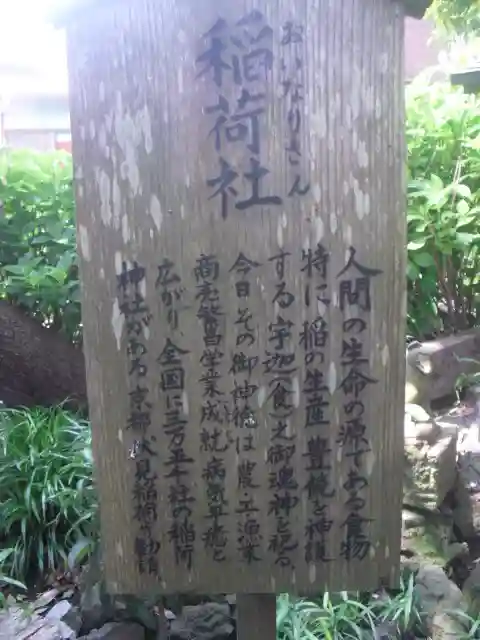 稲荷社
おいなりさん
人間の生命の源である食物
特に稲の生産豊饒を神護
する宇迦(食)之御魂神を祀る
今日その御神徳は農工漁業
商売繁昌学業成就病気平癒と
広がり、全国に三万五千社の稲荷
神社がある京都伏見稲荷